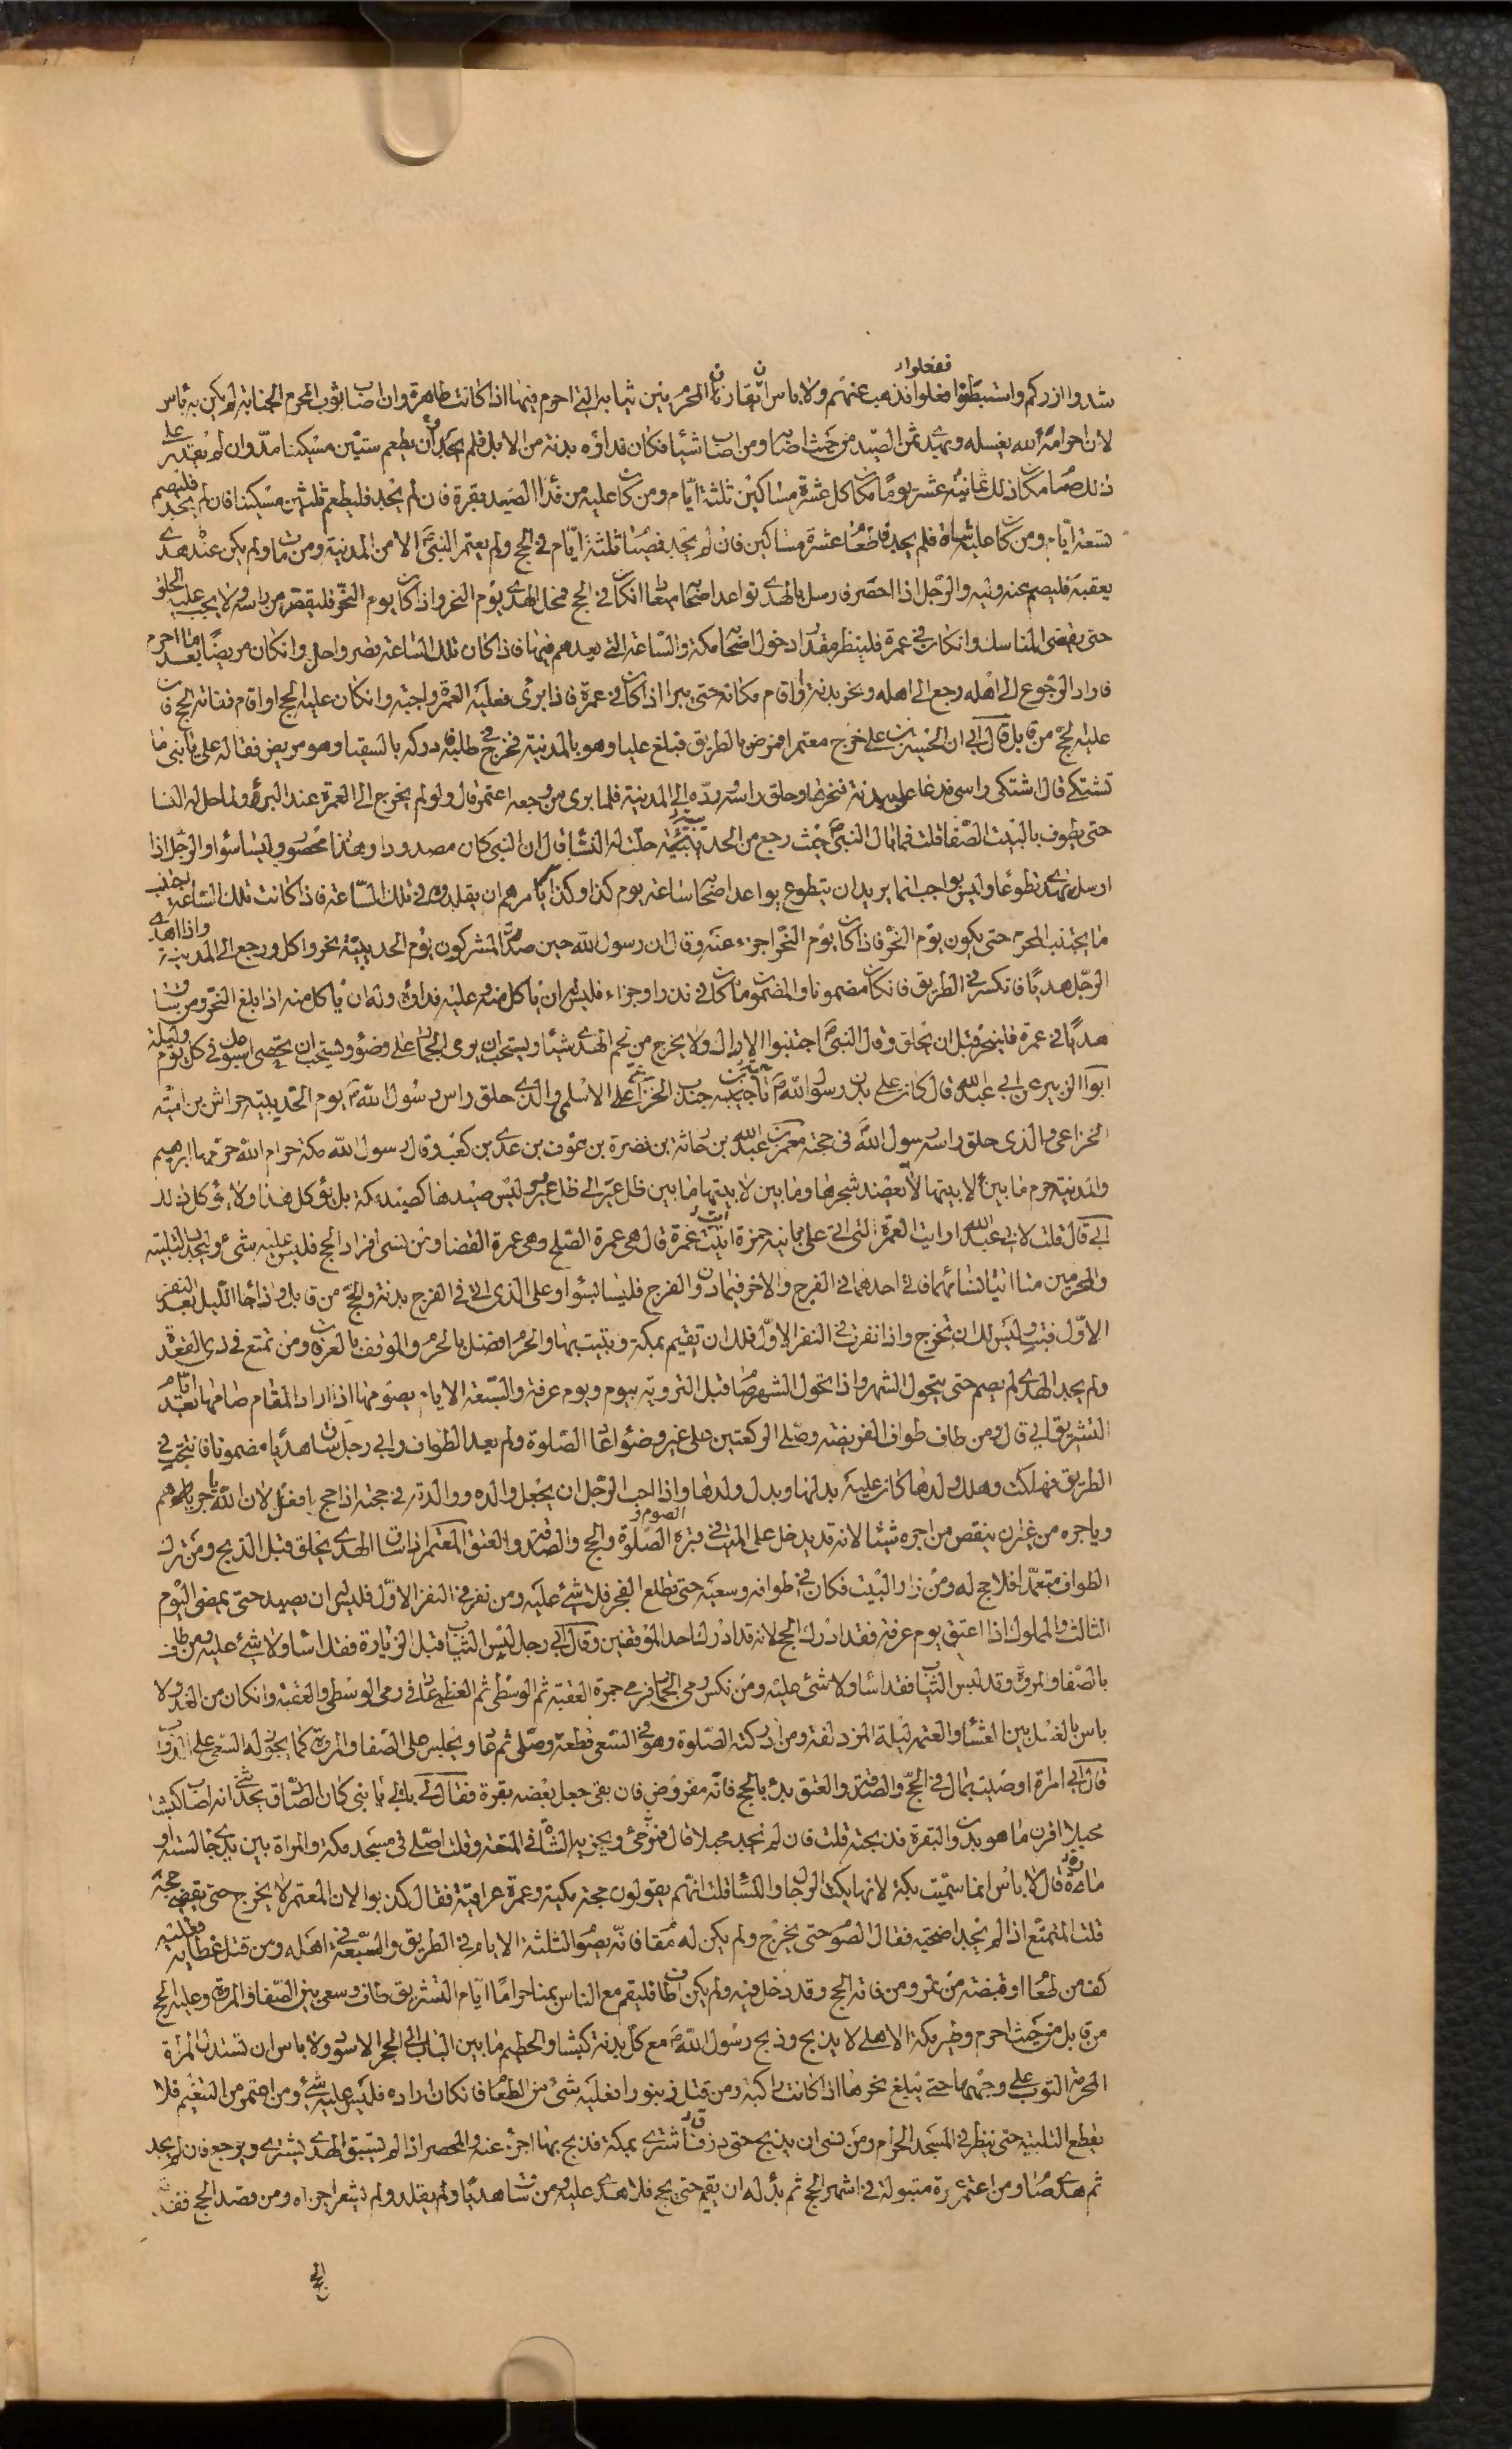 ففعلوا
شدوا ازركم واستبطنوا ففعلوا فذهب عنهم ولا باس ان يقارن المحرم بين ثيابه التي احرم فيها اذا كانت طاهرة وان اصاب ثوب المحرم الجنابة لم يكن به باس
لان احرامه لله يغسله ويهدى ثمن الصيد من حيث اصابه ومن اصاب شيئا فكان فداؤه بدنة من الابل فلم يجد فان يطعم ستين مسكينا مدّ وان لم يقدر على
ذلك صام مكان ذلك ثمانية عشر يوما مكان كل عشرة مساكين ثلثة ايّام ومن كان عليه من فدا الصيد بقرة فان لم يجد فليطعم ثلثين مسكينا فان لم يجد فليصم
تسعة ايام ومن كان عليه شاة فلم يجد فاطعام عشرة مساكين فان لم يجد فصيام ثلثة ايّام في الحج ولم يعتمر النبي الا من المدينة ومن مات ولم يكن عنده هدى
يعقبه فليصم عنه وليه والرجل اذا احصر فارسل بالهدى تواعد اصحابه ميعادا ان كان في الحج فمحل الهدى يوم النحر واذا كان يوم النحر فليقصر من راسه ولا يجب عليه الحلق
حتى يقضى المناسك وان كان في عمرة فلينظر مقدار دخول اصحابه مكة والساعة التي يعدهم فيها فاذا كان تلك الساعة قصر واحل وان كان مريضا بعد ما احرم
فاراد الرجوع الى اهله رجع الى اهله ونحر بدنة او اقام مكانه حتى يبرا اذا كان في عمرة فاذا برى فعليه العمرة واجبة وان كان عليه الحج او اقام ففاته الحج فان
عليه الحج من قابل قال ابي ان الحسين بن علي خرج معتمرا فمرض بالطريق فبلغ عليا وهو بالمدينة فخرج في طلبه فادركه بالسقيا وهو مريض فقال له علي يا بني ما
تشتكي قال اشتكى راسى فدعا على ببدنة فنحرها وحلق راسه وردّه الى المدينة فلما برى من وجعه اعتمر قال ولو لم يخرج الى العمرة عند البرؤ لما حل له النسا
حتى يطوف بالبيت الصفا قلت فما بال النبي حيث رجع من الحديبية حلّت له النسا قال ان النبي كان مصدودا وهذا محصور وليسا سواء والرجل اذا
ارسل بهدى تطوعا وليس بواجب انما يريد ان يتطوع يواعد اصحابه ساعة يوم كذا وكذا يامرهم ان يقلدوه في تلك الساعة فاذا كانت تلك الساعة يجتنب
ما يجتنب المحرم حتى يكون يوم النحر فاذا كان يوم النحر اجزء عنه وقال ان رسول الله حين صدّ المشركون يوم الحديبية نحر واكل ورجع الى المدينة واذا اهدى
الرجل هديا فانكسر في الطريق فان كان مضمونا والمضمون ما كان في نذر او جزاء فليس له ان ياكل منه وعليه فداؤه وله ان ياكل منه اذا بلغ النحر ومن ساق
هديا في عمرة فلينحر قبل ان يحلق وقال النبي اجتنبوا الاراك ولا يخرج من لحم الهدى شيئا ويستحب ان يرمى الجمار على وضوء ويستحب ان يحصى اسبوعه في كل يوم وليلة
ابو الزبير عن ابي عبد الله قال كان على بدن رسول الله ناجية بن جندب الخزاعي الاسلمي والذى حلق راس رسول الله يوم الحديبية خراش بن امية
الخزاعي والذى حلق راسه رسول الله في حجته معمر بن عبد الله بن حارثة بن نضرة بن عوف بن عدى بن كعب وقال رسول الله مكة حرام الله حرمها ابرهيم
والمدينة حرم ما بين لابيتها لا يعضد شجرها وما بين لابيتها ما بين ظل عير الى ظل وعير ليس صيدها كصيد مكة بل يؤكل هذا ولا يؤكل ذلك
ابي قال قلت لابي عبد الله ارايت العمرة التي اتى على بابنة حمزة ايّت عمرة قال هى عمرة الصلح وهى عمرة القضا ومن نسى افراد الحج فليس عليه شىء ويجدد التلبية
والمحرمين منا اتيا نسائهما فاتى احدهما في الفرج والاخر فيما دون الفرج فليسا بسواء وعلى الذى اتى في الفرج بدنة والحج من قابل واذا جا الليل بعد النفر
الاول فبت وليس لك ان تخرج واذا نفرت في النفر الاوّل فلك ان تقيم بمكة وتبيت بها والنحر افضل بالحرم والموقف بالعرفة ومن تمتع في ذى القعدة
ولم يجد الهدى لم يصم حتى يتحول الشهر واذا تحول الشهر صام قبل التروية بيوم ويوم عرفة والسبعة الايام يصومها اذا اراد المقام صامها بعد ايام
التشريق ابي قال ومن طاف طواف الفريضة وصلى الركعتين على غير وضوء اعاد الصلوة ولم يعد الطواف وايّ رجل ساق هديا مضمونا فانتج في
الطريق فهلكت وهلك ولدها كان عليه بدلها وبدل ولدها واذا احب الرجل ان يجعل والده ووالدته في حجته اذا حج فعل لان الله ياجرهم
وياجره من غير ان ينقص من اجره شيئا لانه قد يدخل على الميت في قبره الصلوة والصوم والحج والصدقة والعتق المعتمر اذا ساق الهدى يحلق قبل الذبح ومن ترك
الطواف متعمدا فلا حج له ومن زار البيت فكان في طوافه وسعيه حتى تطلع الفجر فلا شئ عليه ومن نفر في النفر الاوّل فليس له ان يصيد حتى يمضى اليوم
الثالث والمملوك اذا اعتق يوم عرفة فقد ادرك الحج لانه قد ادرك احد الموقفين وقال ابي رجل لبس الثياب قبل الزيارة فقد اسا ولا شئ عليه ومن طاف
بالصفا والمروة وقد لبس الثياب فقد اسا ولا شئ عليه ومن نكس رمى الجمار فرمى جمرة العقبة ثم الوسطى ثم العظمى عاد فرمى الوسطى والعقبة وان كان من الغد ولا
باس بالغسل بين العشا والعتمة ليلة المزدلفة ومن ادركته الصلوة وهو في السعى قطعه وصلى ثم عاد ويجلس على الصفا والمروة كما يجوز له السعى على الدواب
قال ابي امراة اوصت بمال في الحج والصدقة والعتق بدئ بالحج فانه مفروض فان بقى جعل بعضه بقرة فقال لي يا بني كان الصادق يحدث انه اصاب كبشا
محبلا اقرن ما هو بدون البقرة فذبحته قلت فان لم نجد محبلا قال موجئ ويجزيه الشاة في المتعة وقلت اصلى في مسجد مكة والمراة بين يدى جالسة او
مارة قال لا باس انما سميت بكة لانها يبكت الرجال والنسا قلت انهم يقولون حجة مكية وعمرة عراقية فقال كذبوا لان المعتمر لا يخرج حتى يقضى حجة
قلت المتمتع اذا لم يجد اضحية فقال يصوم حتى يخرج ولم يكن له مقام فانه يصوم الثلثة الايام في الطريق والسبعة في اهله ومن قتل عظاية فعليه
كف من طعام او قبضة من تمر ومن فاته الحج وقد دخل فيه ولم يكن طاف فليقم مع الناس بمنا حراما ايام التشريق طاف وسعى بين الصفا والمروة وعليه الحج
من قابل من حيث احرم وطير مكة الاهلى لا يذبح وذبح رسول الله مع كل بدنة كبشا والحطيم ما بين الباب الى الحجر الاسود ولا باس ان تسدل المراة
المحرمة الثوب على وجهها حتى يبلغ نحرها اذا كانت راكبة ومن قتل زنبورا فعليه شئ من الطعام فان كان اراده فليس عليه شئ ومن اعتمر من التنعيم فلا
يقطع التلبية حتى ينظر في المسجد الحرام ومن نسى ان يذبح حتى زار فاشترى بمكة فذبح بها اجزء عنه والمحصر اذا لم يسق الهدى يشترى ويرجع فان لم يجد
ثم هدى صام ومن اعتمر عمرة متبولة في اشهر الحج ثم بدا له ان يقيم حتى يحج فلا هدى عليه ومن ساق هديا ولم يقلد ولم يشعر اجزاه ومن قصد الحج فقد
الحج